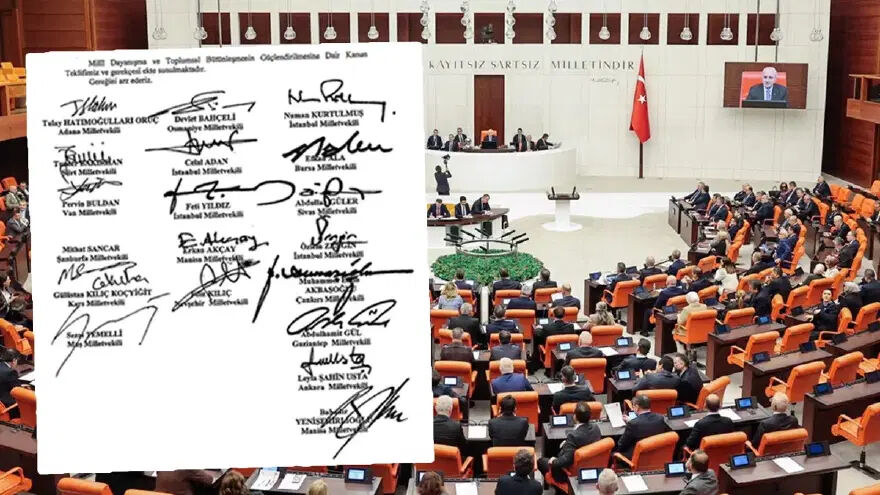 Millî Dayanışma ve Toplumsal Bütünleşmenin Güçlendirilmesine Dair Kanun
Teklifimiz ve gerekçesi ekte sunulmaktadır.
Gereğini arz ederiz.
Tülay HATİMOĞULLARI ORUÇ
Adana Milletvekili
Devlet BAHÇELİ
Osmaniye Milletvekili
Numan KURTULMUŞ
İstanbul Milletvekili
BAKIRHAN
Siirt Milletvekili
Celal ADAN
İstanbul Milletvekili
Efkan ALA
Bursa Milletvekili
Pervin BULDAN
Van Milletvekili
Feti YILDIZ
İstanbul Milletvekili
Abdullah GÜLER
Sivas Milletvekili
Mithat SANCAR
Şanlıurfa Milletvekili
Erkan AKÇAY
Manisa Milletvekili
Özlem ZENGİN
İstanbul Milletvekili
Gülistan KILIÇ KOÇYİĞİT
Kars Milletvekili
KILIÇ
Nevşehir Milletvekili
Muhammet
AKBAŞOĞLU
Çankırı Milletvekili
Sezai TEMELLİ
Muş Milletvekili
Abdulhamit GÜL
Gaziantep Milletvekili
Leyla ŞAHİN USTA
Ankara Milletvekili
Bahadır
YENİŞEHİRLİOĞLU
Manisa Milletvekili
HAKİMİYET KAYITSIZ ŞARTSIZ MİLLETİNDİR